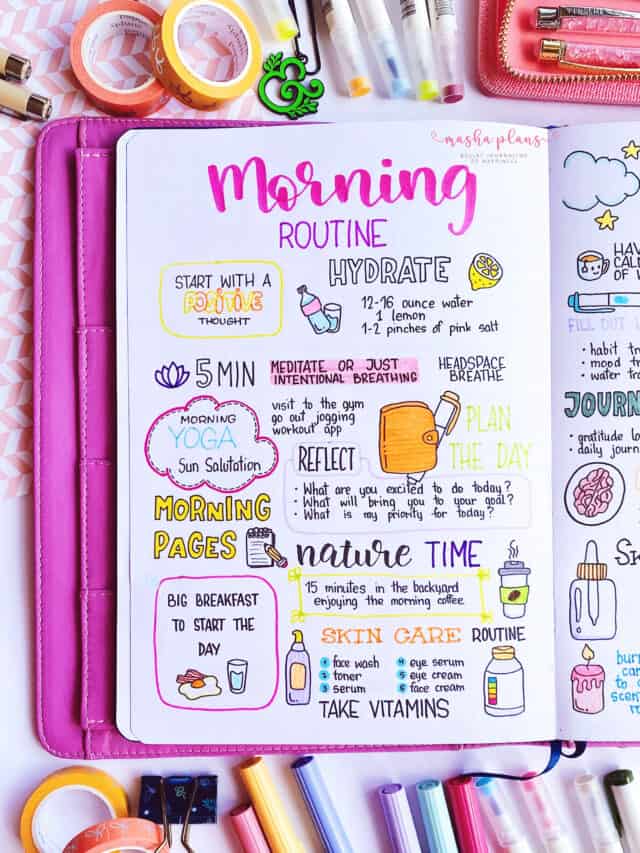 masha plans
BULLET JOURNALING
TO HAPPINESS
Morning
ROUTINE
START WITH A
POSITIVE
THOUGHT
HYDRATE
12-16 ounce water
1 lemon
1-2 pinches of pink salt
5 MIN
MEDITATE OR JUST
INTENTIONAL BREATHING
HEADSPACE
BREATHE
MORNING
YOGA
Sun Salutation
visit to the gym
go out jogging
workout app
PLAN
THE DAY
REFLECT
• What are you excited to do today?
• What will bring you to your goal?
• What is my priority for today?
MORNING
PAGES
nature TIME
15 minutes in the backyard
enjoying the morning coffee
BIG BREAKFAST
TO START THE
DAY
SKIN CARE ROUTINE
1 face wash
2 toner
3 serum
4 eye serum
5 eye cream
6 face cream
TAKE VITAMINS
HAV
CAL
OF
FILL OUT
• habit
• mood
• water
JOURN
• gratitude
• daily journ
SK
burn
can
to
scen